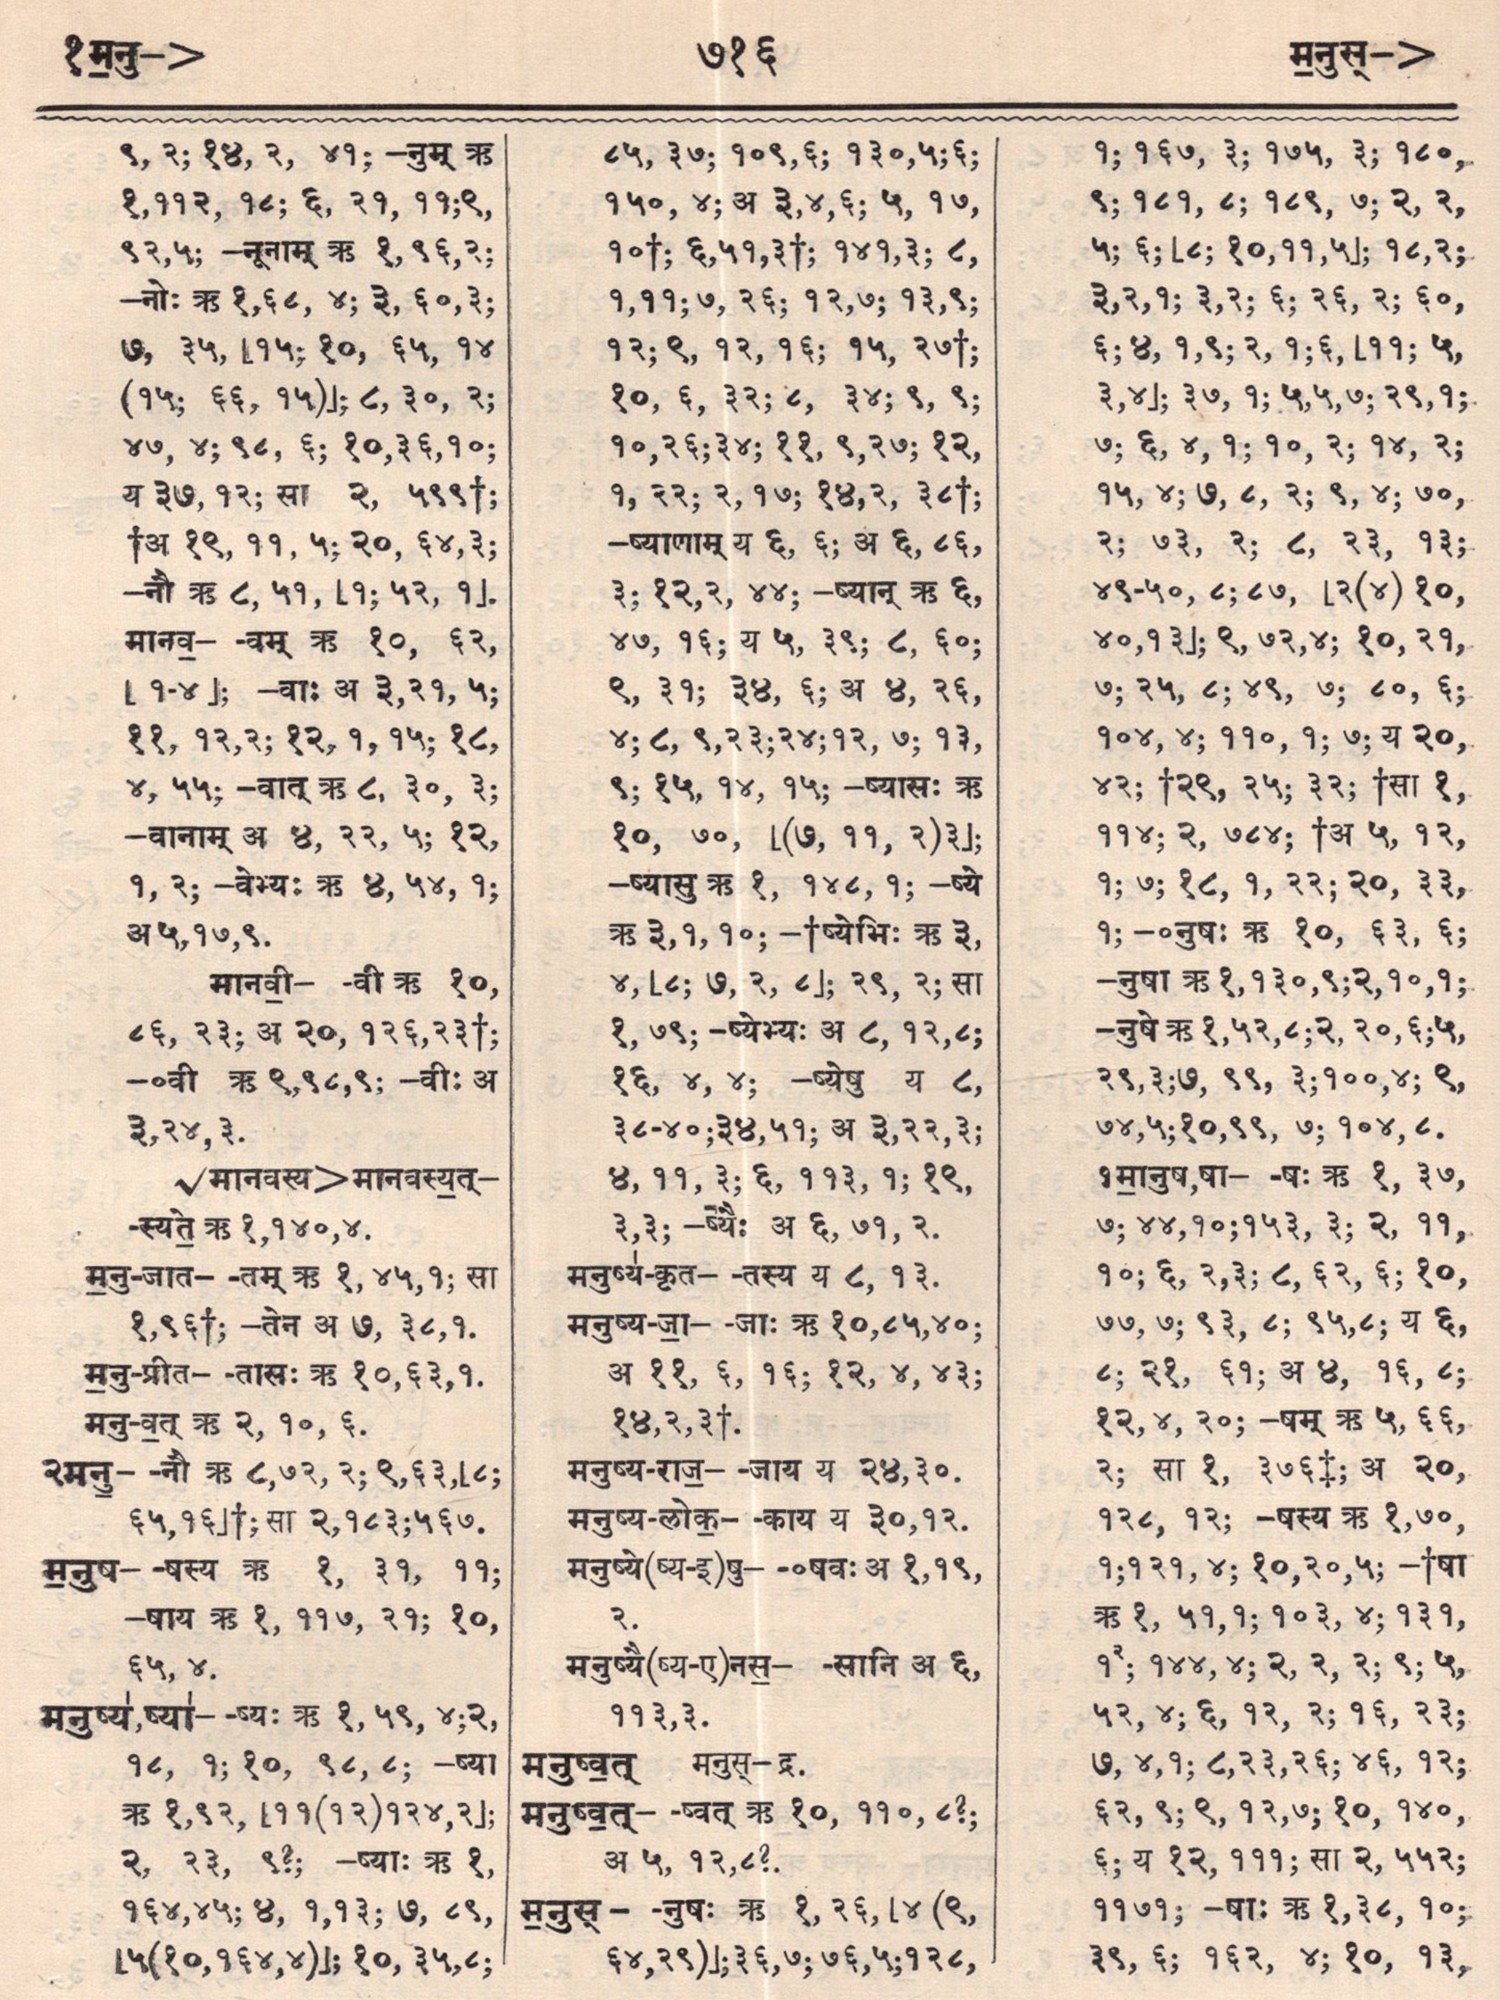 १म॒नु–>
७१६
म॒नुस्–>
९, २; १४, २, ४१; –नुम् ऋ
१,११२, १८; ६, २१, ११;९,
९२,५; –नूनाम् ऋ १,९६,२;
–नोः ऋ १,६८, ४; ३, ६०,३;
७, ३५, ⌊१५; १०, ६५, १४
(१५; ६६, १५)⌋; ८, ३०, २;
४७, ४; ९८, ६; १०,३६,१०;
य ३७, १२; सा २, ५९९†;
†अ १९, ११, ५; २०, ६४,३;
–नौ ऋ ८, ५१, ⌊१; ५२, १⌋.
मानव॒– -वम् ऋ १०, ६२,
⌊ १-४ ⌋; –वाः अ ३,२१, ५;
११, १२,२; १२, १, १५; १८,
४, ५५; –वात् ऋ ८, ३०, ३;
–वानाम् अ ४, २२, ५; १२,
१, २; –वेभ्यः ऋ ४, ५४, १;
अ ५,१७,९.
मानवी॒– -वी ऋ १०,
८६, २३; अ २०, १२६,२३†;
–॰वी ऋ ९,९८,९; –वीः अ
३,२४,३.
√मानवस्य>मानवस्य॒त्–
-स्यते॒ ऋ १,१४०,४.
म॒नु-जात– -तम् ऋ १, ४५,१; सा
१,९६†; –तेन अ ७, ३८,१.
म॒नु-प्रीत– -तासः ऋ १०,६३,१.
मनु-व॒त् ऋ २, १०, ६.
२मनु॒– -नौ ऋ ८,७२, २; ९,६३,⌊८;
६५,१६⌋†; सा २,१८३;५६७.
म॒नुष– -षस्य ऋ १, ३१, ११;
–षाय ऋ १, ११७, २१; १०,
६५, ४.
मनुष्य॑,ष्या॑– -ष्यः ऋ १,५९, ४;२,
१८, १; १०, ९८,८; –ष्या
ऋ १,९२, ⌊११(१२)१२४,२⌋;
२, २३, ९?; –ष्याः ऋ १,
१६४,४५; ४, १,१३; ७, ८९,
⌊५(१०,१६४,४)⌋; १०, ३५,८;
८५, ३७; १०९,६; १३०,५;६;
१५०, ४; अ ३,४,६; ५, १७,
१०†; ६,५१,३†; १४१,३; ८,
१,११; ७, २६; १२,७; १३,९;
१२; ९, १२, १६; १५, २७†;
१०, ६, ३२; ८, ३४; ९, ९;
१०,२६;३४; ११, ९,२७; १२,
१, २२; २, १७; १४,२, ३८†;
–ष्याणाम् य ६, ६; अ ६,८६,
३; १२,२, ४४; –ष्यान् ऋ ६,
४७, १६; य ५, ३९; ८, ६०;
९, ३१; ३४, ६; अ ४, २६,
४; ८, ९,२३;२४;१२, ७; १३,
९; १५, १४, १५; –ष्यासः ऋ
१०, ७०, ⌊(७, ११, २)३⌋;
–ष्यासु ऋ १, १४८, १; –ष्ये
ऋ ३,१, १०; –†ष्येभिः ऋ ३,
४, ⌊८; ७, २, ८⌋; २९, २; सा
१, ७९; –ष्येभ्यः अ ८, १२,८;
१६, ४, ४; –ष्येषु य ८,
३८-४०;३४,५१; अ ३,२२,३;
४, ११, ३; ६, ११३, १; १९,
३,३; –ष्यैः॑ अ ६, ७१, २.
मनुष्य॑-कृत– -तस्य य ८, १३.
मनुष्य-जा॒– -जाः ऋ १०,८५,४०;
अ ११, ६, १६; १२, ४, ४३;
१४,२,३†.
मनुष्य-राज॒– -जाय य २४,३०.
मनुष्य-लोक॒– -काय य ३०,१२.
मनुष्ये(ष्य-इ)षु– -॰षवः अ १,१९,
२.
मनुष्यै(ष्य-ए)नस॒– -सानि अ ६,
११३,३.
मनुष्व॒त् मनुस्– द्र.
मनुष्व॒त्– -ष्वत् ऋ १०, ११०,८?;
अ ५, १२,८?.
म॒नुस्– -नुषः ऋ १, २६,⌊४ (९,
६४,२९)⌋;३६,७; ७६,५;१२८,
१; १६७, ३; १७५, ३; १८०,
९; १८१, ८; १८९, ७; २, २,
५; ६;⌊८; १०,११,५⌋; १८,२;
३,२,१; ३,२; ६; २६, २; ६०,
६; ४, १,९; २, १;६, ⌊११; ५,
३,४⌋; ३७, १; ५,५,७; २९,१;
७; ६, ४, १; १०, २; १४, २;
१५, ४; ७, ८, २; ९, ४; ७०,
२; ७३, २; ८, २३, १३;
४९-५०, ८; ८७, ⌊२(४) १०,
४०,१३⌋; ९, ७२,४; १०, २१,
७; २५, ८; ४९, ७; ८०, ६;
१०४, ४; ११०, १; ७; य २०,
४२; †२९, २५; ३२; †सा १,
११४; २, ७८४; †अ ५, १२,
१; ७; १८, १, २२; २०, ३३,
१; –॰नुषः ऋ १०, ६३, ६;
–नुषा ऋ १,१३०,९;२,१०,१;
–नुषे ऋ १,५२,८;२, २०,६;५,
२९,३;७, ९९, ३;१००,४; ९,
७४,५;१०,९९, ७; १०४,८.
१मा॒नुष,षा– -षः ऋ १, ३७,
७; ४४,१०;१५३, ३; २, ११,
१०; ६, २,३; ८, ६२, ६; १०,
७७, ७; ९३, ८; ९५,८; य ६,
८; २१, ६१; अ ४, १६, ८;
१२, ४, २०; –षम् ऋ ५, ६६,
२; सा १, ३७६‡; अ २०,
१२८, १२; –षस्य ऋ १,७०,
१;१२१, ४; १०,२०,५; –†षा
ऋ १, ५१,१; १०३, ४; १३१,
१२; १४४, ४; २, २, २; ९; ५,
५२, ४; ६, १२, २; १६, २३;
७, ४,१; ८,२३,२६; ४६, १२;
६२, ९; ९, १२,७; १०, १४०,
६; य १२, १११; सा २, ५५२;
११७१; –षाः ऋ १,३८, १०;
३९, ६; १६२, ४; १०, १३,